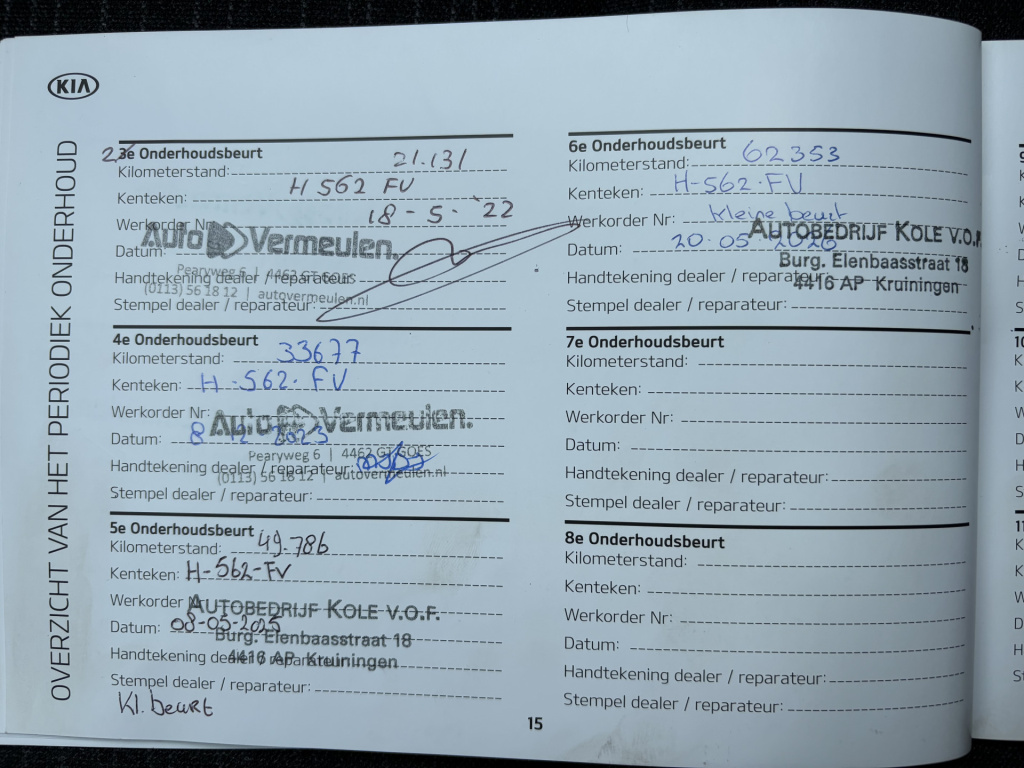 KIA
OVERZICHT VAN HET PERIODIEK ONDERHOUD
2 3e Onderhoudsbeurt
Kilometerstand: 21.131
Kenteken: H 562 FV
Werkorder Nr: 18-5-'22
Datum:
Auto Vermeulen.
Handtekening dealer / reparateur:
Pearyweg 6 | 4462 GT GOES
(0113) 56 18 12 | autovermeulen.nl
Stempel dealer / reparateur:
4e Onderhoudsbeurt
Kilometerstand: 33677
Kenteken: H-562-FV
Werkorder Nr:
Auto Vermeulen.
Datum: 8 12 2023
Pearyweg 6 | 4462 GT GOES
Handtekening dealer / reparateur:
(0113) 56 18 12 | autovermeulen.nl
Stempel dealer / reparateur:
5e Onderhoudsbeurt
Kilometerstand: 49.786
Kenteken: H-562-FV
Werkorder Nr:
AUTOBEDRIJF KOLE V.O.F.
Datum: 08-05-2025
Burg. Elenbaasstraat 18
Handtekening dealer / reparateur:
4416 AP Kruiningen
Stempel dealer / reparateur:
Kl. beurt
6e Onderhoudsbeurt
Kilometerstand: 62353
Kenteken: H-562-FV
Werkorder Nr: kleine beurt
AUTOBEDRIJF KOLE V.O.F.
Datum: 20-05-2026
Burg. Elenbaasstraat 18
Handtekening dealer / reparateur:
4416 AP Kruiningen
Stempel dealer / reparateur:
7e Onderhoudsbeurt
Kilometerstand:
Kenteken:
Werkorder Nr:
Datum:
Handtekening dealer / reparateur:
Stempel dealer / reparateur:
8e Onderhoudsbeurt
Kilometerstand:
Kenteken:
Werkorder Nr:
Datum:
Handtekening dealer / reparateur:
Stempel dealer / reparateur:
15